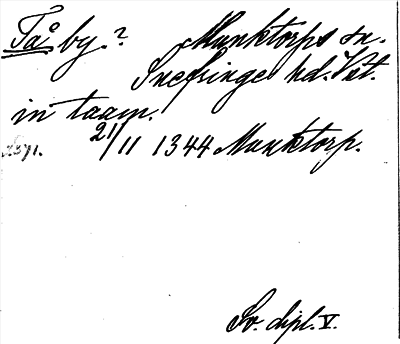 Tå by? Munktorps sn.
Snefringe hd. Vst.
in taam.
21/11 1344 Munktorp.
Sv. dipl. V.